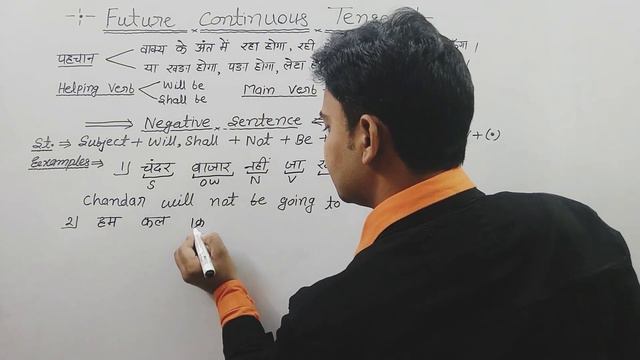 Future Continuous Tense
पहचान
वाक्य के अंत में रहा होगा, रही
या खड़ा होगा, पड़ा होगा, लेटा
Helping Verb Will be Main Verb
Shall be
Negative Sentence
St. ⇒ Subject + Will, Shall + Not + Be + + (.)
Examples ⇒ 1) चंदर बाजार नहीं जा
S OW N V
Chandar will not be going to
2) हम कल